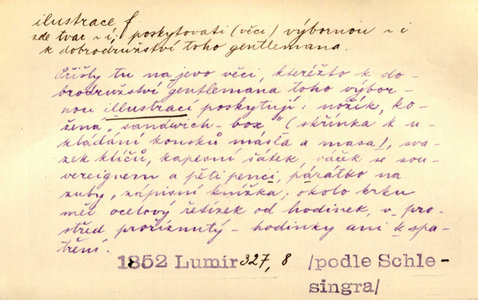 ilustrace f
zde tvar ~í, poskytovati (věci) výbornou ~i
k dobrodružství toho gentlemana.
Přišly tu na jevo věci, kteréžto k do-
brodružství gentlemana toho výbor-
nou illustraci poskytují: nožík, ko-
žená „sandwich-box" (skřínka k u-
kládání kousků másla a masa), sva-
zek klíčů, kapesní šátek, váček se sou-
vereignem a pěti penci, párátko na
zuby, zápisní knížka; okolo krku
měl ocelový řetízek od hodinek, v pro-
střed proříznutý - hodinky ani k spa-
tření.
1852 Lumír 327, 8 /podle Schle-
singra/